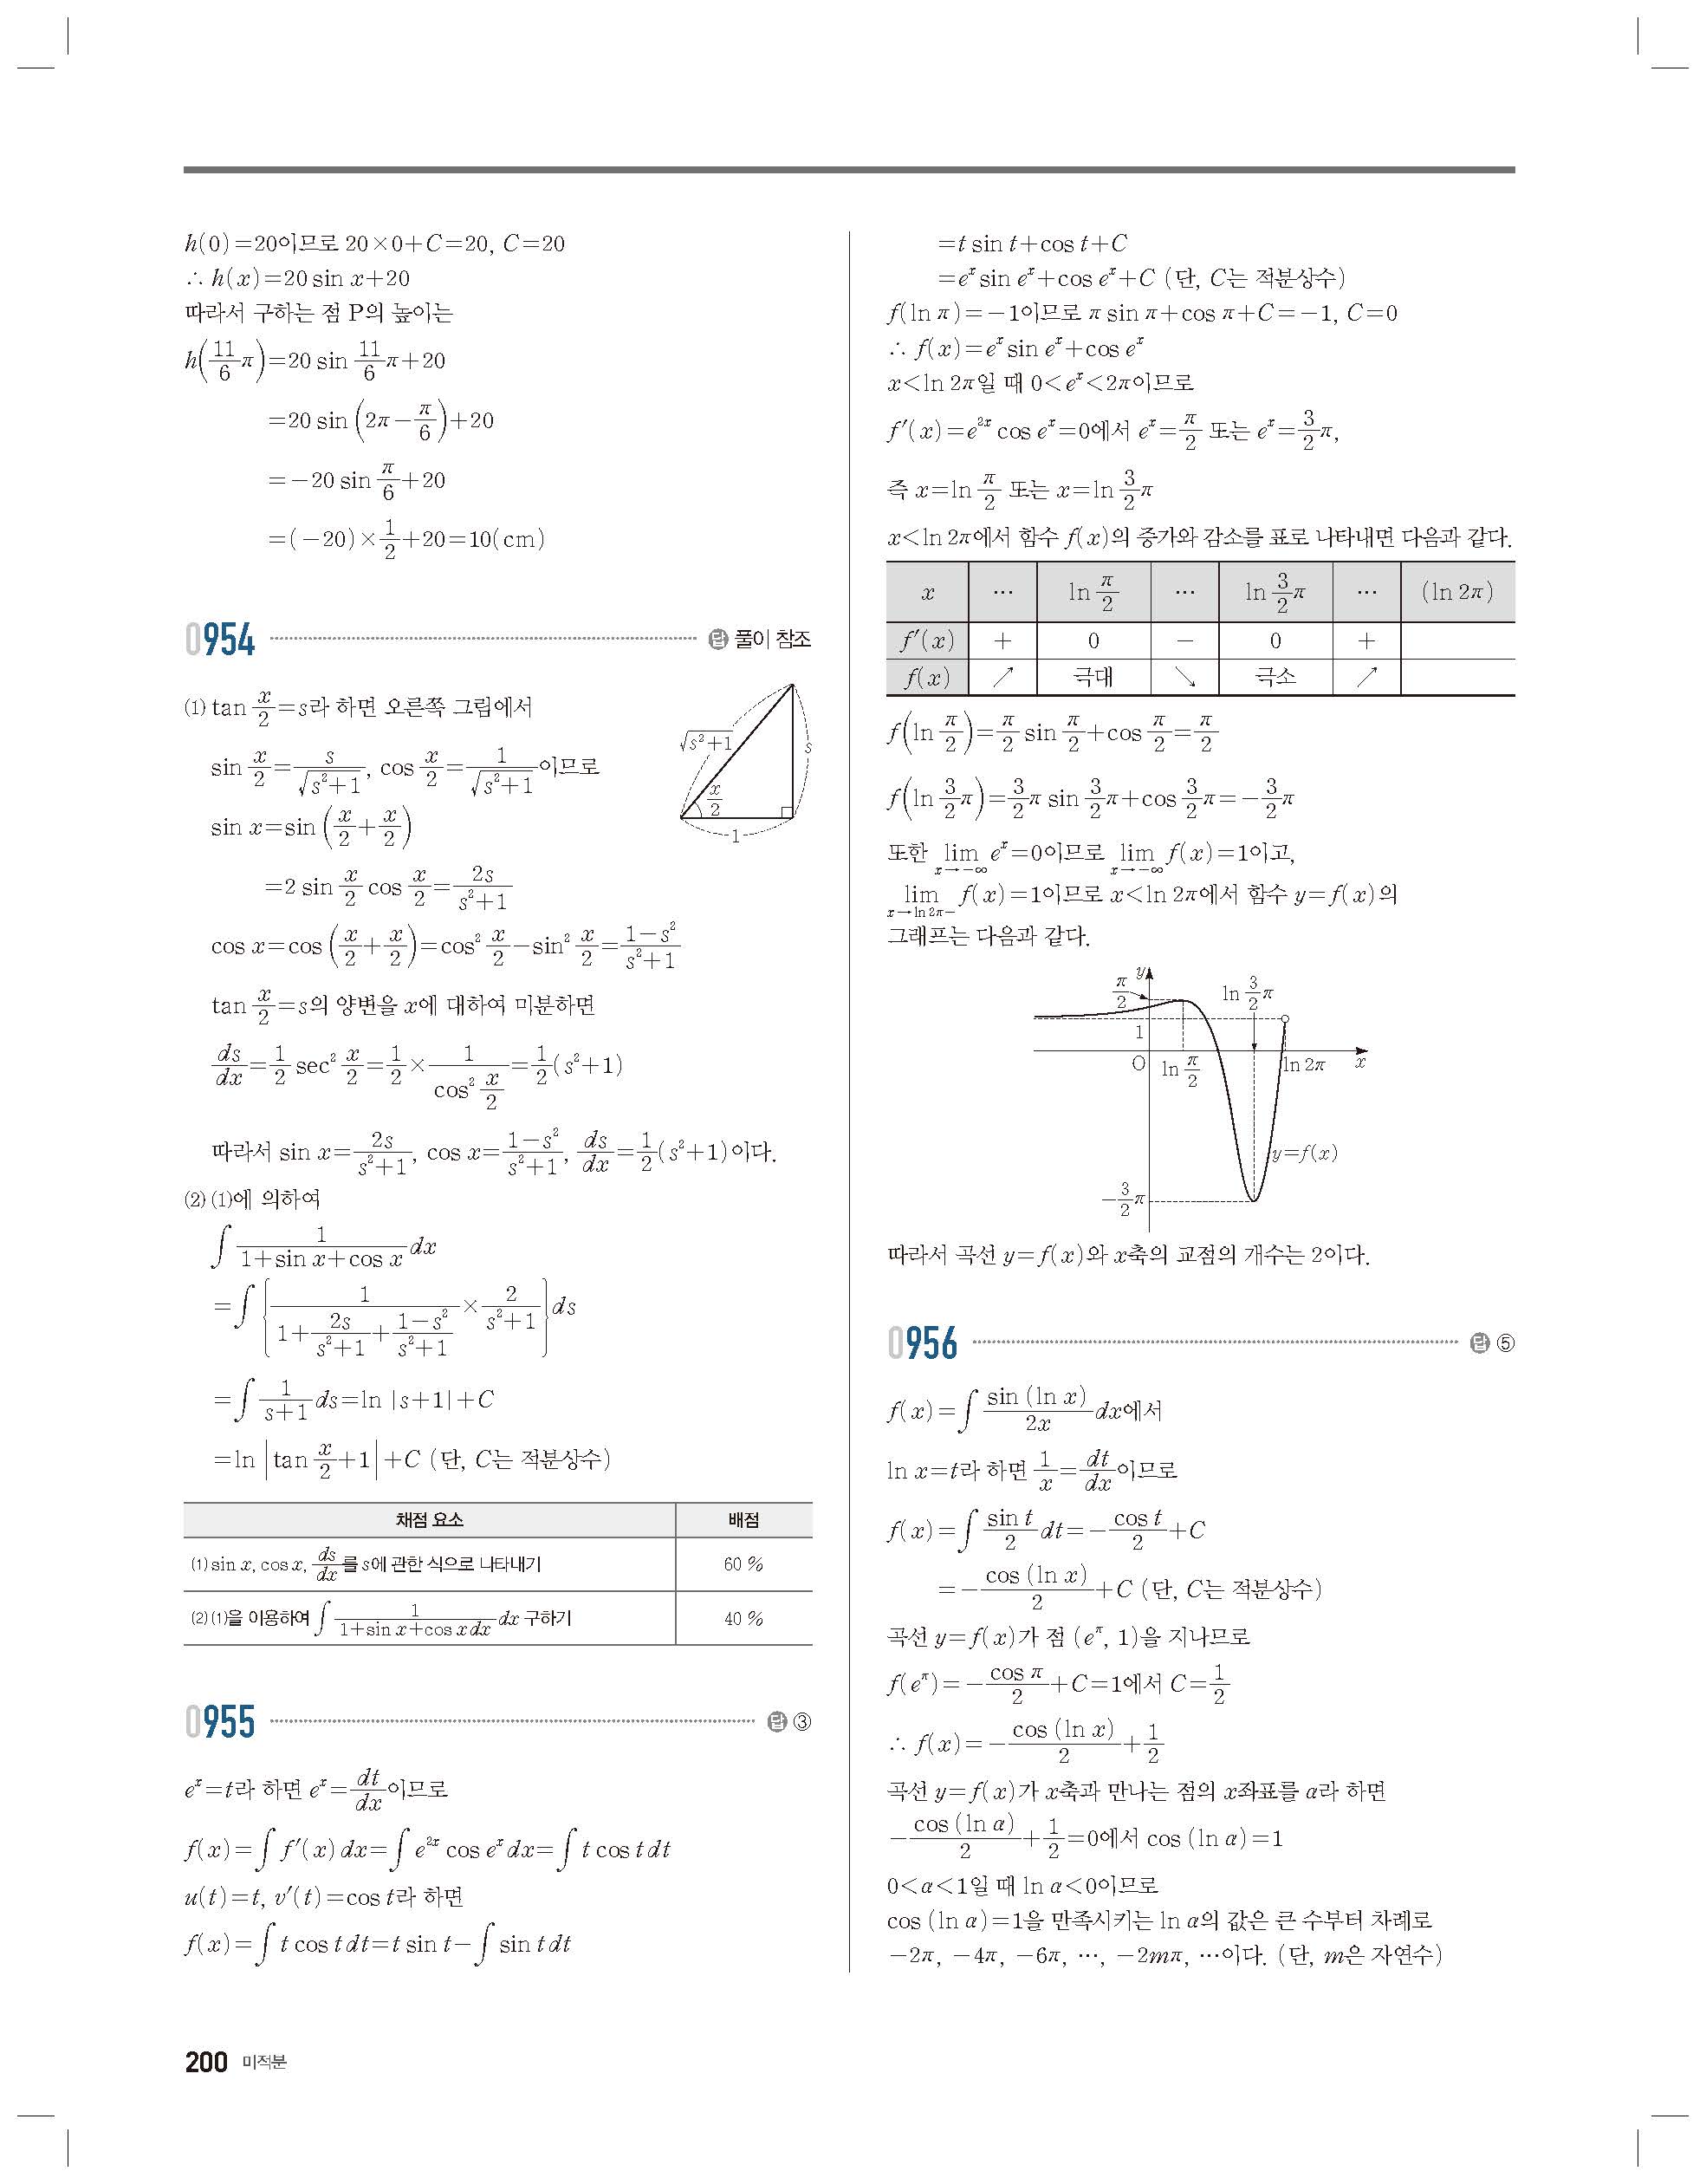 h(0)=20이므로 20×0+C=20, C=20
∴ h(x)=20 sin x+20
따라서 구하는 점 P의 높이는
h(11/6 π)=20 sin 11/6 π+20
=20 sin (2π−π/6)+20
=−20 sin π/6+20
=(−20)×1/2+20=10(cm)
0954 답 풀이 참조
⑴ tan x/2=s라 하면 오른쪽 그림에서
sin x/2=s/√(s²+1), cos x/2=1/√(s²+1)이므로
sin x=sin (x/2+x/2)
=2 sin x/2 cos x/2=2s/(s²+1)
cos x=cos (x/2+x/2)=cos² x/2−sin² x/2=(1−s²)/(s²+1)
√(s²+1)
s
x/2
1
tan x/2=s의 양변을 x에 대하여 미분하면
ds/dx=1/2 sec² x/2=1/2×1/(cos² x/2)=1/2(s²+1)
따라서 sin x=2s/(s²+1), cos x=(1−s²)/(s²+1), ds/dx=1/2(s²+1)이다.
⑵ ⑴에 의하여
∫ 1/(1+sin x+cos x) dx
=∫ {1/(1+2s/(s²+1)+(1−s²)/(s²+1))×2/(s²+1)} ds
=∫ 1/(s+1) ds=ln |s+1|+C
=ln |tan x/2+1|+C (단, C는 적분상수)
채점 요소 배점
⑴ sin x, cos x, ds/dx를 s에 관한 식으로 나타내기 60 %
⑵ ⑴을 이용하여 ∫ 1/(1+sin x+cos x dx) dx 구하기 40 %
0955 답 ③
eˣ=t라 하면 eˣ=dt/dx이므로
f(x)=∫ f′(x) dx=∫ e²ˣ cos eˣ dx=∫ t cos t dt
u(t)=t, v′(t)=cos t라 하면
f(x)=∫ t cos t dt=t sin t−∫ sin t dt
=t sin t+cos t+C
=eˣ sin eˣ+cos eˣ+C (단, C는 적분상수)
f(ln π)=−1이므로 π sin π+cos π+C=−1, C=0
∴ f(x)=eˣ sin eˣ+cos eˣ
x<ln 2π일 때 0<eˣ<2π이므로
f′(x)=e²ˣ cos eˣ=0에서 eˣ=π/2 또는 eˣ=3/2 π,
즉 x=ln π/2 또는 x=ln 3/2 π
x<ln 2π에서 함수 f(x)의 증가와 감소를 표로 나타내면 다음과 같다.
x … ln π/2 … ln 3/2 π … (ln 2π)
f′(x) + 0 − 0 +
f(x) ↗ 극대 ↘ 극소 ↗
f(ln π/2)=π/2 sin π/2+cos π/2=π/2
f(ln 3/2 π)=3/2 π sin 3/2 π+cos 3/2 π=−3/2 π
또한 lim x→−∞ eˣ=0이므로 lim x→−∞ f(x)=1이고,
lim x→ln 2π− f(x)=1이므로 x<ln 2π에서 함수 y=f(x)의
그래프는 다음과 같다.
y
π/2
ln 3/2 π
1
O
ln π/2
ln 2π
x
y=f(x)
−3/2 π
따라서 곡선 y=f(x)와 x축의 교점의 개수는 2이다.
0956 답 ⑤
f(x)=∫ sin (ln x)/2x dx에서
ln x=t라 하면 1/x=dt/dx이므로
f(x)=∫ sin t/2 dt=−cos t/2+C
=−cos (ln x)/2+C (단, C는 적분상수)
곡선 y=f(x)가 점 (e^π, 1)을 지나므로
f(e^π)=−cos π/2+C=1에서 C=1/2
∴ f(x)=−cos (ln x)/2+1/2
곡선 y=f(x)가 x축과 만나는 점의 x좌표를 α라 하면
−cos (ln α)/2+1/2=0에서 cos (ln α)=1
0<α<1일 때 ln α<0이므로
cos (ln α)=1을 만족시키는 ln α의 값은 큰 수부터 차례로
−2π, −4π, −6π, …, −2mπ, …이다. (단, m은 자연수)
200 미적분